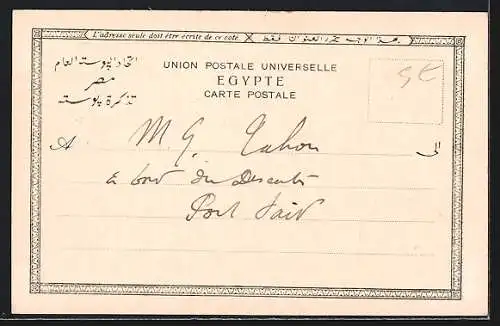 L'adresse seule doit être écrite de ce côté
اتحاد البوستة العام
مصر
تذكرة بوسته
UNION POSTALE UNIVERSELLE
EGYPTE
CARTE POSTALE
5€
A M. G. الى
à bord du
Port Said